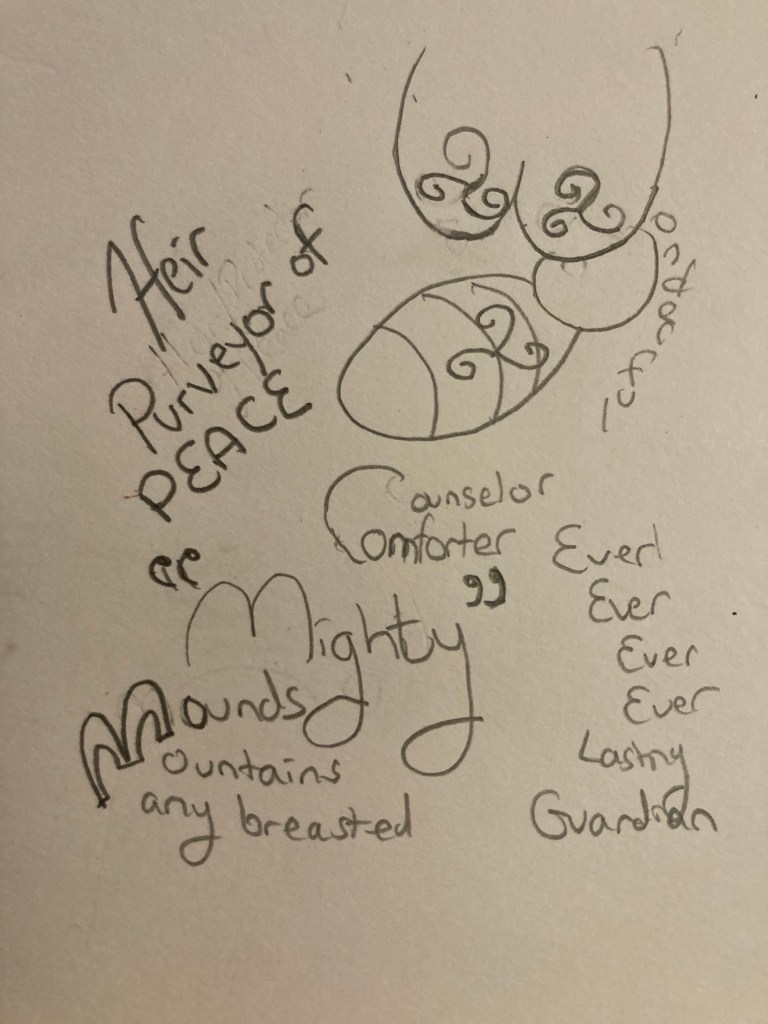 Heir
Purveyor of
PEACE
Counselor
Comforter
Mighty
Mounds
ountains
any breasted
Ever
Ever
Ever
Ever
Lasting
Guardian